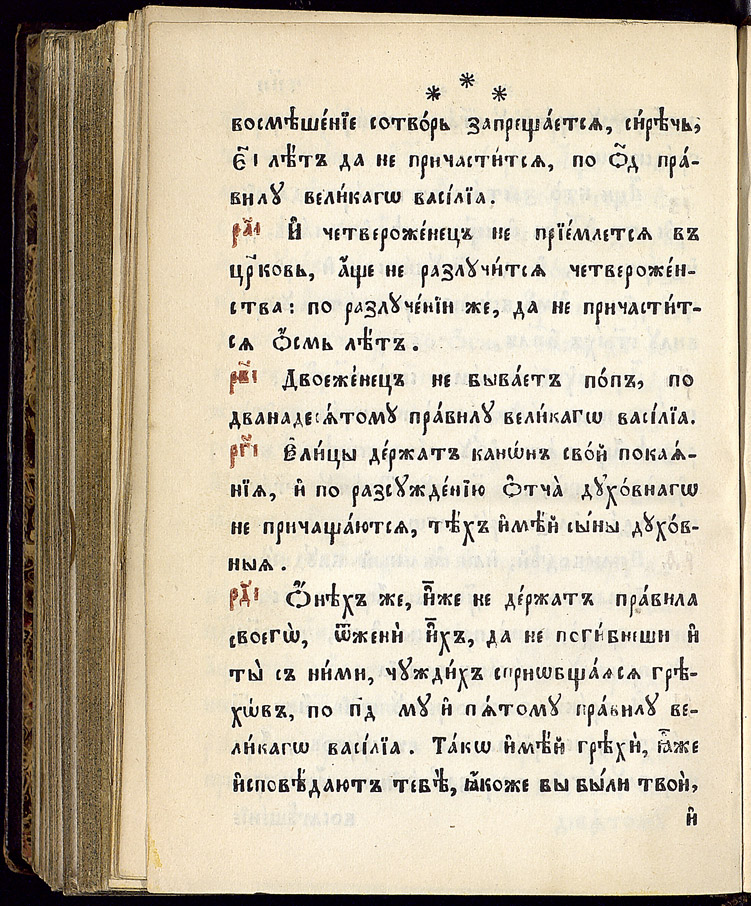 * * *
восмѣше́нїе сотво́рь запреща́етсѧ, си́рѣчь,
є҃і лѣ́тъ да не причасти́тсѧ, по ѻ҃д пра́-
вилꙋ вели́кагѡ васі́лїа.
ра҃і И҆ четвероже́нецъ не прїе́млетсѧ въ
цр҃ковь, а҆́ще не разлꙋчи́тсѧ четвероже́н-
ства: по разлꙋче́нїи же, да не причасти́т-
сѧ ѻ҆́смь лѣ́тъ.
рв҃і Двоеже́нецъ не быва́етъ по́пъ, по
дванадесѧ́томꙋ пра́вилꙋ вели́кагѡ васі́лїа.
рг҃і Е҆ли́цы де́ржатъ канѡ́нъ сво́й покаѧ́-
нїѧ, и҆ по разсꙋжде́нїю Ѻ҆тча̀ дꙋхо́внагѡ
не причаща́ютсѧ, тѣ́хъ и҆мѣ́й сы́ны дꙋхо́в-
ныѧ.
рд҃і Ѻ҆́нѣхъ же, и҆̀же не де́ржатъ пра́вила
своегѡ̀, ѿженѝ и҆́хъ, да не поги́бнеши и҆
ты̀ съ ни́ми, чꙋжди́хъ сприѡбща́ѧсѧ грѣ-
хѡ́въ, по п҃д мꙋ и҆ пѧ́томꙋ пра́вилꙋ ве-
ли́кагѡ васі́лїа. Та́кѡ и҆мѣ́й грѣхѝ, ꙗ҆̀же
и҆сповѣ́даютъ тебѣ̀, ꙗ҆́коже бы бы́ли твои̇̀,
и҆